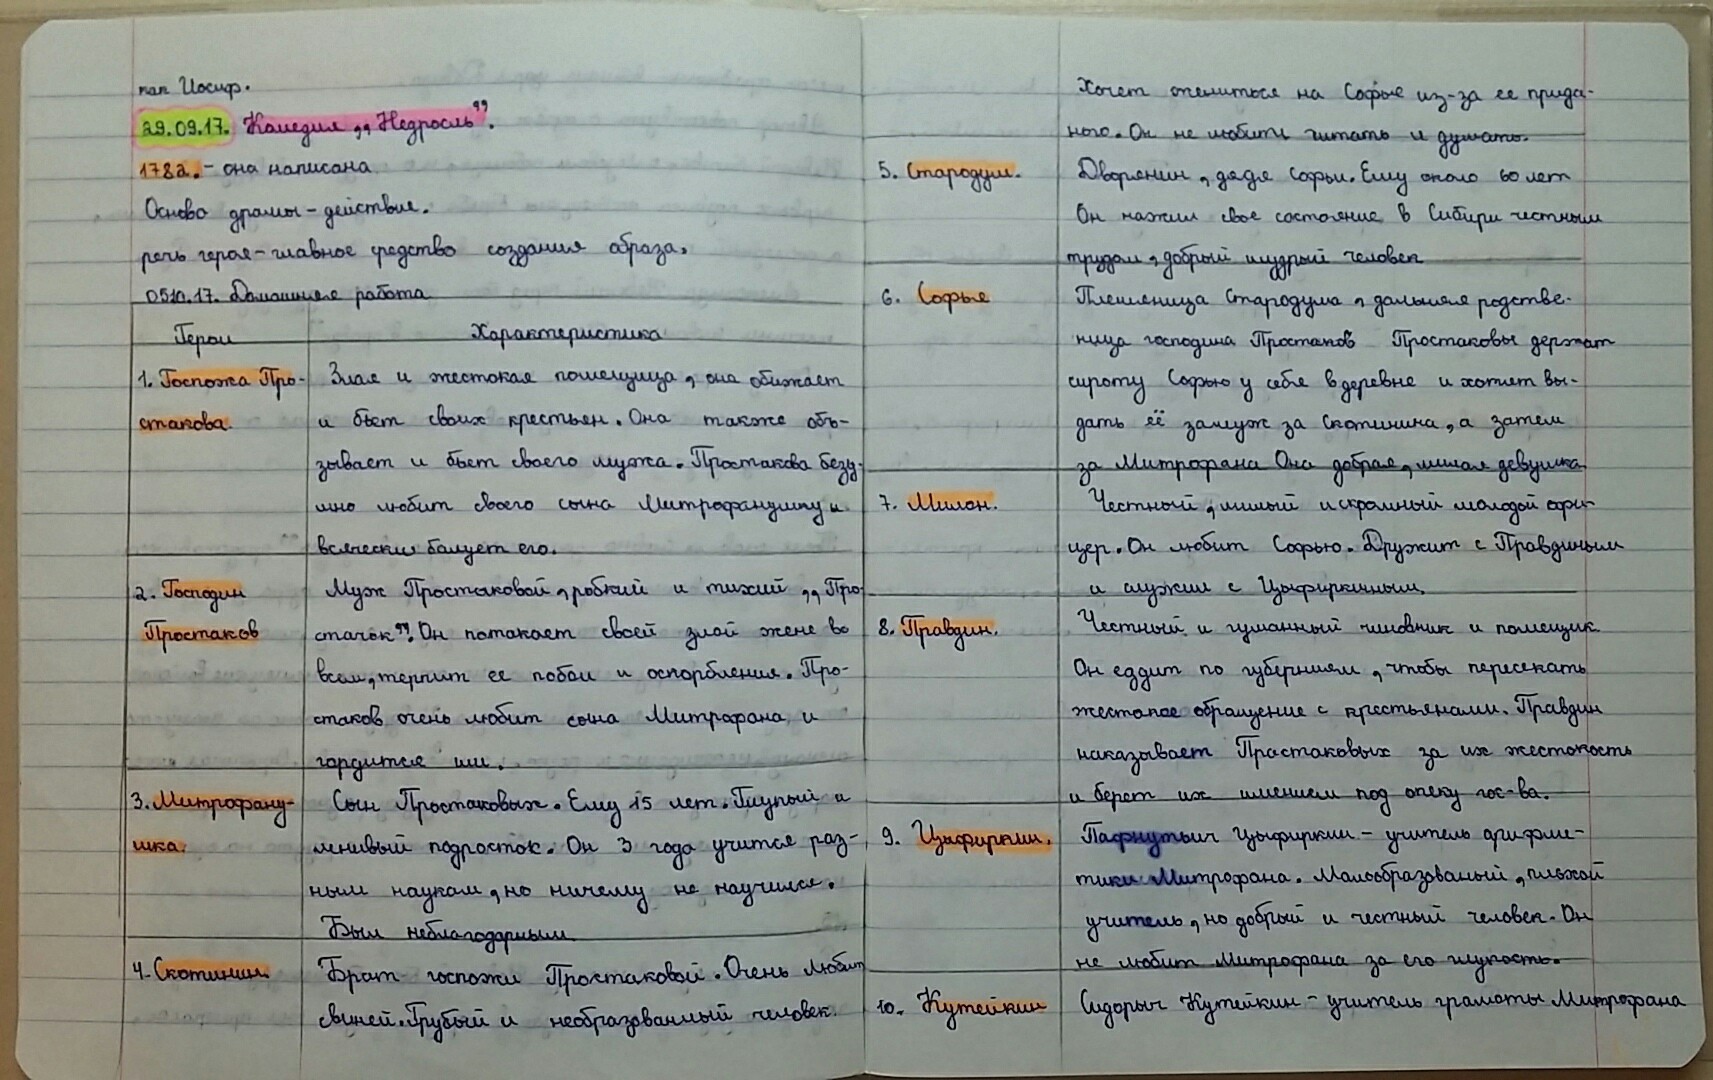 пап Иосиф.
29.09.17. Комедия „Недросль”.
1782. - она написана
Основа драмы - действие.
речь героя - главное средство создания образа,
0510.17. Домашняя работа
Герои Характеристика
1. Госпожа Про- Злая и жестокая помещица, она обижает
стакова. и бьет своих крестьян. Она также обь-
зывает и бьет своего мужа. Простакова безу-
мно любит своего сына Митрофанушку и
всячески балует его.
2. Господин Муж Простаковой, робкий и тихий „Про-
Простаков стачок”. Он потакает своей злой жене во
всем, терпит ее побои и оспорбления. Про-
стаков очень любит сына Митрофана и
гордится им.
3. Митрофану- Сын Простаковых. Ему 15 лет. Глупый и
шка. ленивый подросток. Он 3 года учится раз-
ным наукам, но ничему не научился.
Был неблагодарным
4. Скотинин. Брат госпожи Простаковой. Очень любит
свиней. Грубый и необразованный человек.
Хочет жениться на Софье из-за ее прида-
ного. Он не любить читать и думать.
5. Стародум. Дворянин, дядя Софьи. Ему около 60 лет
Он нажил свое состояние в Сибири честным
трудом, добрый и мудрый человек
6. Софья Племяница Стародума, дальняя родстве-
ница господина Простаков Простаковы держат
сироту Софью у себя в деревне и хотят вы-
дать её замуж за Скотинина, а затем
за Митрофана Она добрая, милая девушка
7. Милон. Честный, милый и скромный молодой офи-
цер. Он любит Софью. Дружит с Правдиным
и служил с Цыфиркиным.
8. Правдин. Честный и гуманный чиновник и помещик
Он еддит по губерниям, чтобы пересекать
жестокое обращение с крестьянами. Правдин
наказывает Прастаковых за их жестокость
и берет их имением под опеку гос-ва.
9. Цыфиркин. Пафнутьич Цыфиркин - учитель арифме-
тики Митрофана. Малообразованый, плохой
учитель, но добрый и честный человек. Он
не любит Митрофана за его глупость.
10. Кутейкин Сидорыч Кутейкин - учитель грамоты Митрофана